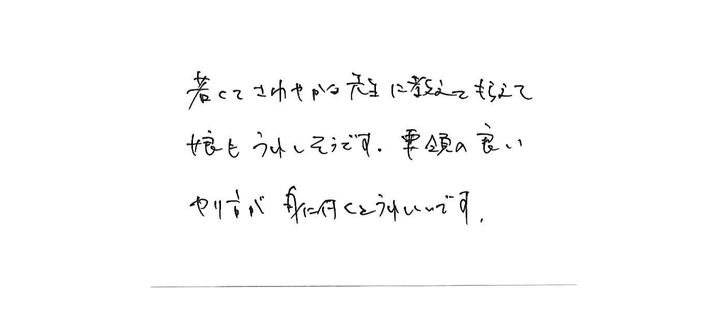 若くてさわやかな先生に教えてもらえて
娘もうれしそうです。要領の良い
やり方が身に付くとうれしいです。